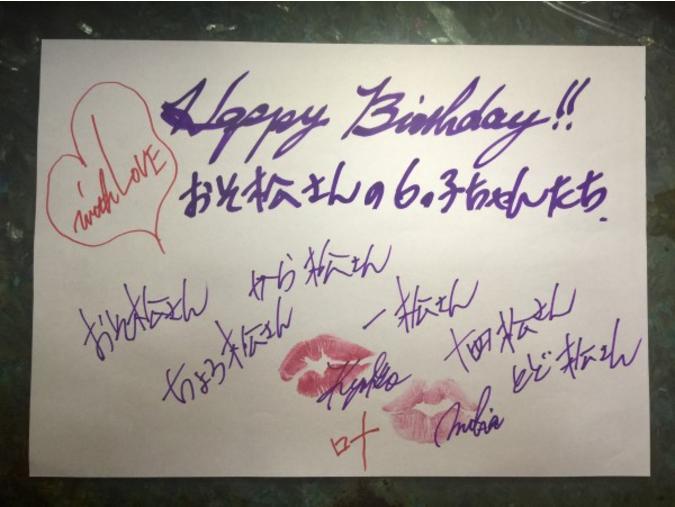 with LOVE
Happy Birthday!!
おそ松さんの6つ子ちゃんたち.
おそ松さん
から松さん
ちょろ松さん
一松さん
十四松さん
とど松さん
Kyoko
mika
叶